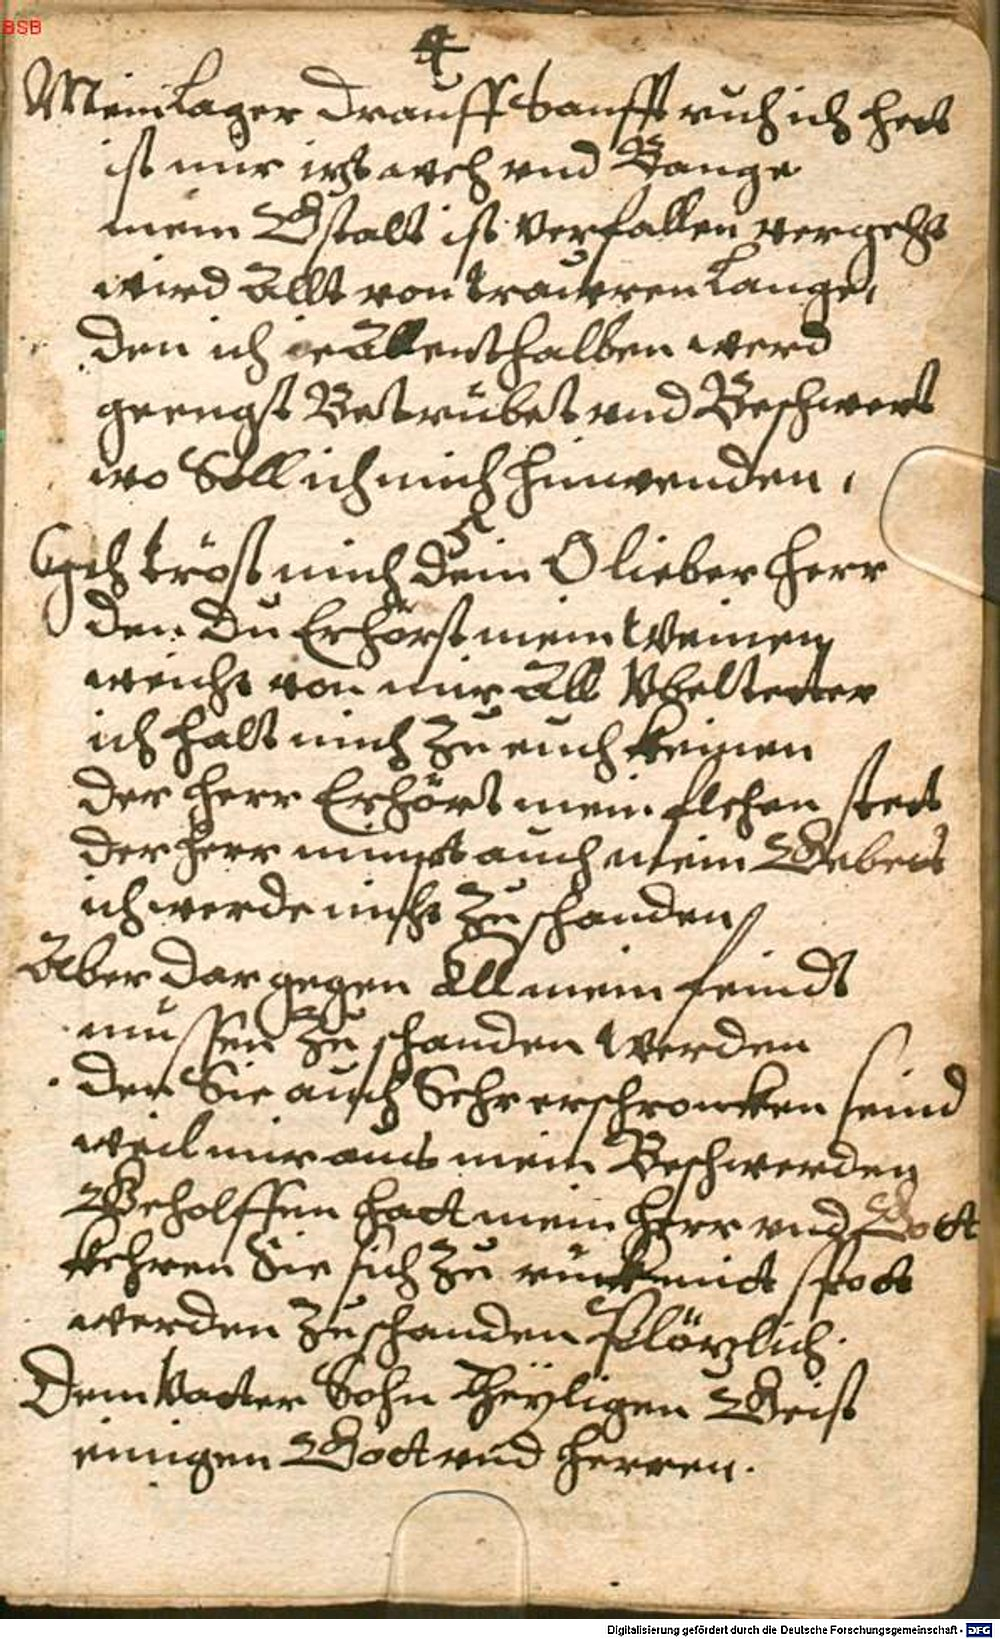 BSB
4
Mein Lager drauff Sanfft ruh ich het
ist mir itzt weh vnd Bange
mein Gstalt ist Verfallen vergeht
wird Allt von trawren Lange,
den ich ie Allenthalben werd
geengst Betrübet vnd Beschwert
wo Soll ich mich hinwenden,
5
Ich tröst mich dein O lieber herr
den Du Erhörst mein Weinen,
weicht von mir All Vbeltetter
ich halt mich Zu euch keinen
der herr Erhört mein flehen stets
der herr nimpt auch mein Gebets
ich werde nicht Zu schanden
Aber dargegen All mein feindt
mussen Zu schanden Werden
den Sie auch Sehr erschrowken seind
weil mir aus mein Beschwerden
Geholffen hatt mein herr vnd Gott
kehren Sie sich Zu rück mit spott
werden Zu schanden Plötzlich.
Dem Vatter Sohn Heyligen Geist
einigen Gott vnd herren.
Digitalisierung gefördert durch die Deutsche Forschungsgemeinschaft - DFG